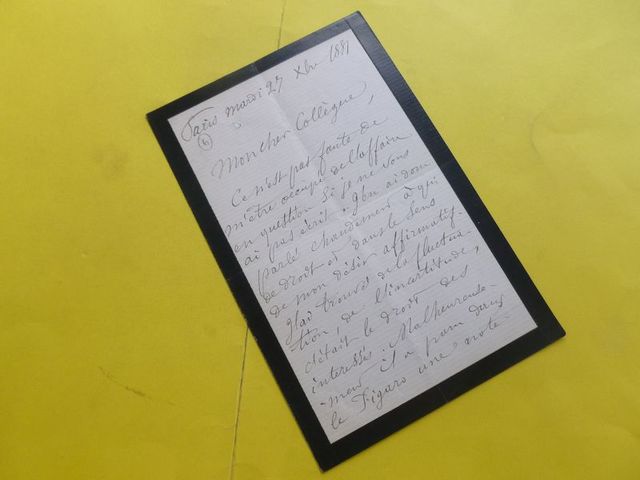 Paris mardi 27 Xbre 1881
Mon cher Collègue,
Ce n'est pas faute de
m'être occupé de l'affaire
en question si je ne vous
ai pas écrit. J'en ai donc
parlé chaudement à qui
de droit et dans le sens
de mon désir affirmatif.
J'ai trouvé de la fluctua-
tion, de l'incertitude,
c'était le droit des
intéressés. Malheureuse-
ment il a paru dans
le Figaro une note